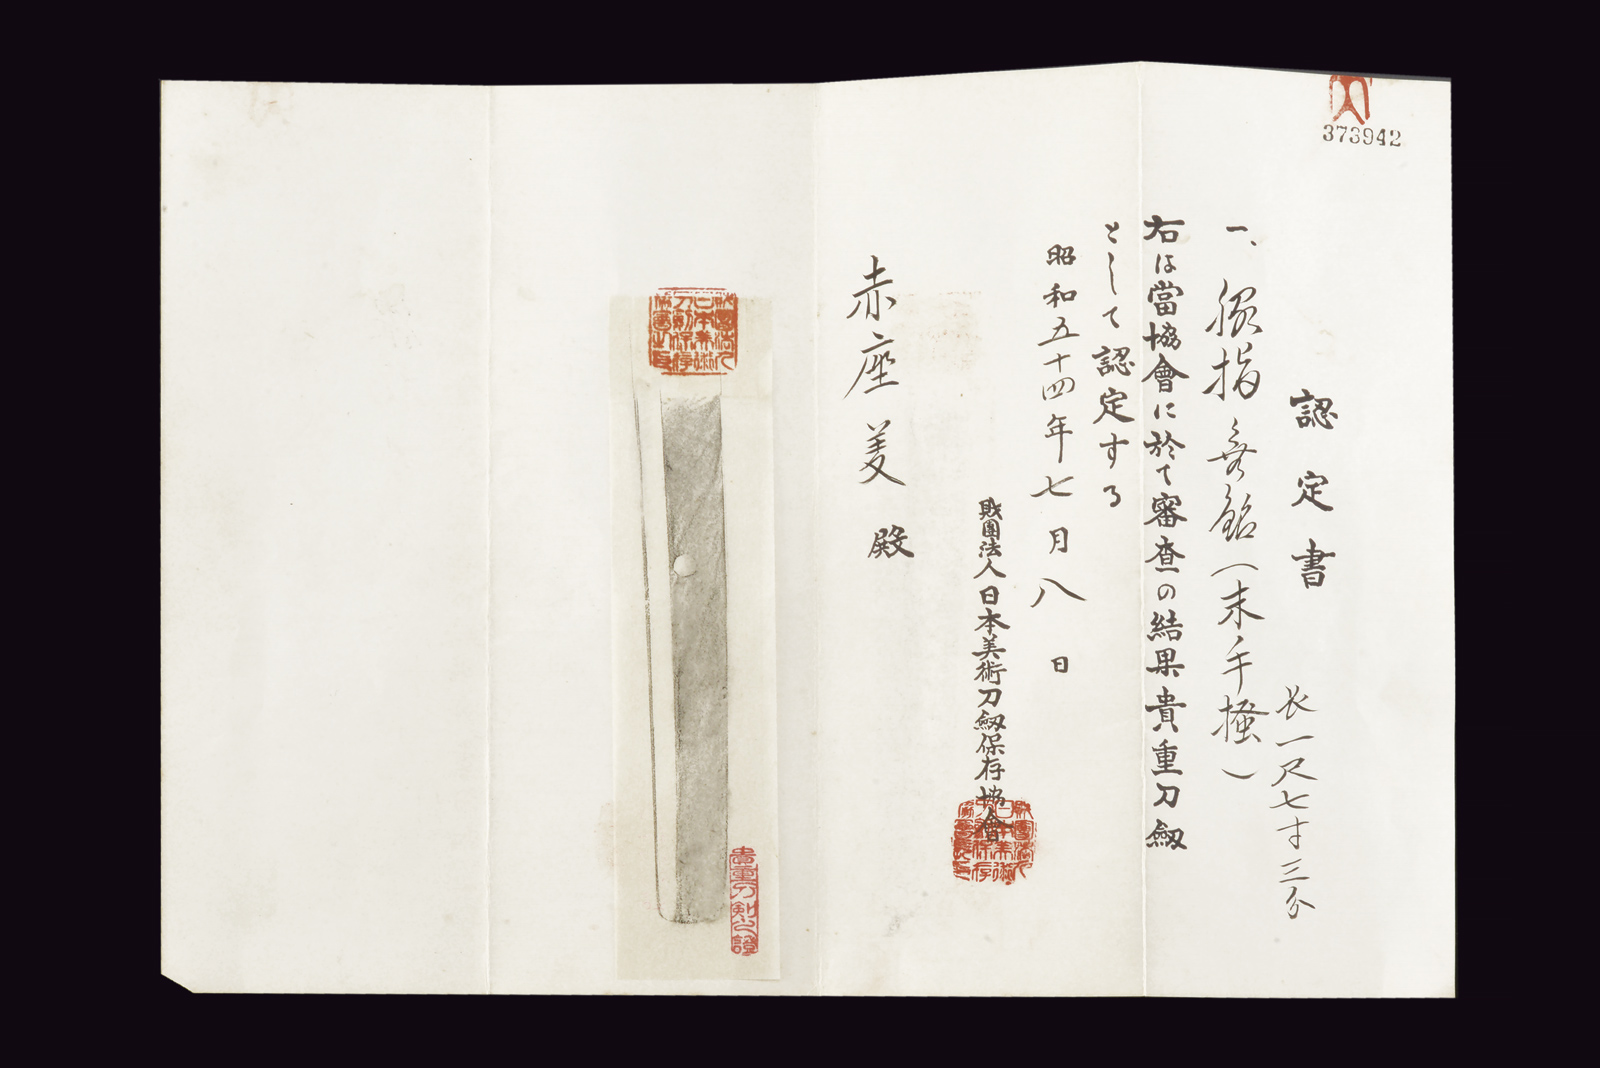 373942
認定書
長一尺七寸三分
一、脇指 無銘(末手掻)
右は當協會に於て審査の結果貴重刀劔
として認定する
昭和五十四年七月八日
財團法人日本美術刀劔保存協會
赤座美殿
貴重刀剣之證